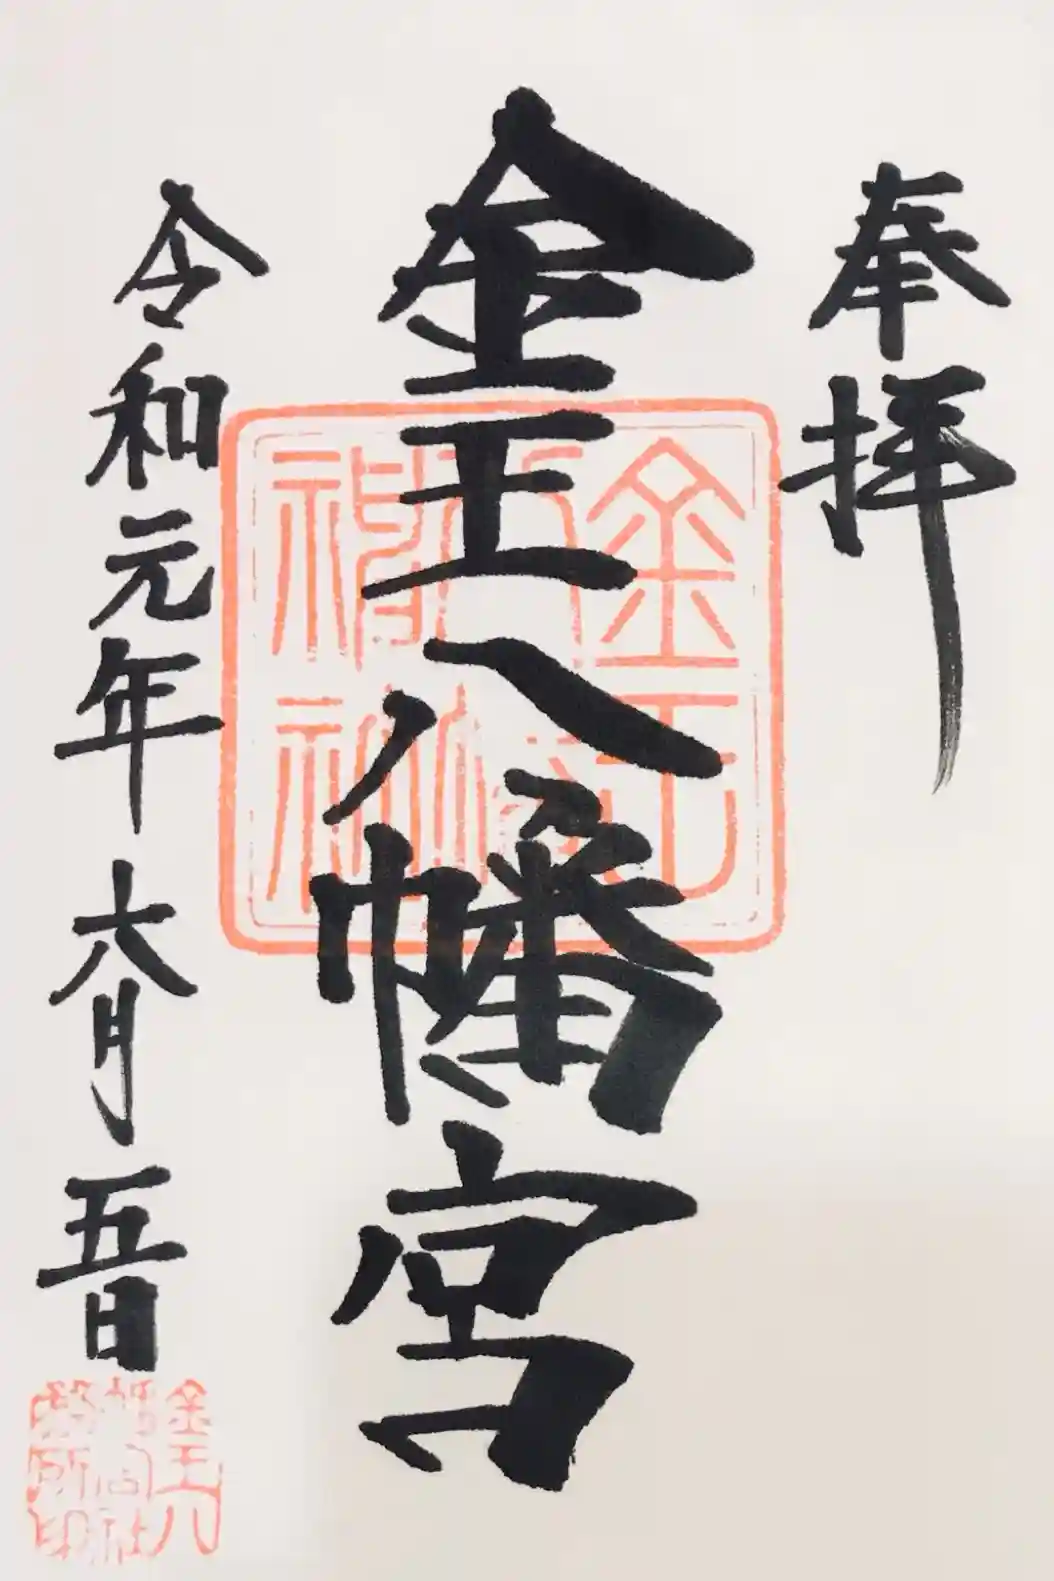 奉拝
金王八幡宮
令和元年六月五日
金王八
幡宮社
務所印